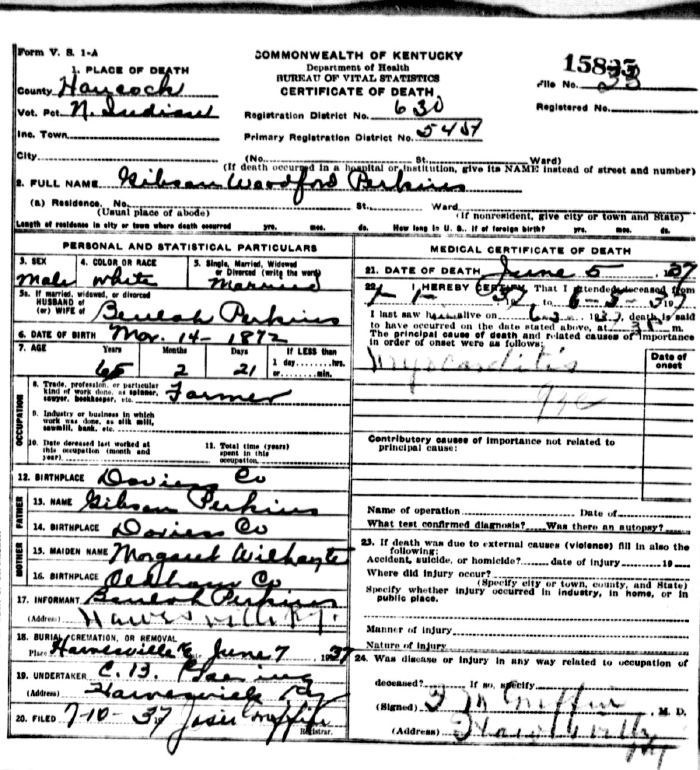 Form V. S. 1-A
COMMONWEALTH OF KENTUCKY
Department of Health
BUREAU OF VITAL STATISTICS
CERTIFICATE OF DEATH
File No.
Registered No.
1. PLACE OF DEATH
County Hancock
Vot. Pct N. Indian
Registration District No. 630
Inc. Town
Primary Registration District No. 5437
City (No. St. Ward)
(If death occurred in a hospital or institution, give its NAME instead of street and number)
2. FULL NAME Gibson Woodford Perkins
(a) Residence. No. St. Ward
(Usual place of abode) (If nonresident, give city or town and State)
Length of residence in city or town where death occurred yrs. mos. ds. How long in U. S., if of foreign birth? yrs. mos. ds.
PERSONAL AND STATISTICAL PARTICULARS
3. SEX 4. COLOR OR RACE 5. Single, Married, Widowed
or Divorced (write the word)
Male White Married
5a. If married, widowed, or divorced
HUSBAND of
(or) WIFE of Beulah Perkins
6. DATE OF BIRTH Mar. 14 - 1872
7. AGE Years Months Days If LESS than
1 day, hrs.
65 2 21 or min.
OCCUPATION
8. Trade, profession, or particular
kind of work done, as spinner,
sawyer, bookkeeper, etc. Farmer
9. Industry or business in which
work was done, as silk mill,
sawmill, bank, etc.
10. Date deceased last worked at
this occupation (month and
year)
11. Total time (years)
spent in this
occupation
12. BIRTHPLACE Daviess Co
FATHER
13. NAME Gibson Perkins
14. BIRTHPLACE Daviess Co
MOTHER
15. MAIDEN NAME Margaret Wilhoyte
16. BIRTHPLACE Oldham Co
17. INFORMANT Beulah Perkins
(Address) Hawesville Ky.
18. BURIAL, CREMATION, OR REMOVAL
Place Hawesville Ky June 7 1937
19. UNDERTAKER C. B.
(Address) Hawesville Ky
20. FILED 7-10-37 Josie Griffin
Registrar.
MEDICAL CERTIFICATE OF DEATH
21. DATE OF DEATH June 5, 1937
22. I HEREBY CERTIFY, That I attended deceased from
1-1-37 to 6-5-37
I last saw him alive on 1937, death is said
to have occurred on the date stated above, at m.
The principal cause of death and related causes of importance
in order of onset were as follows:
Date of
onset
Myocarditis
Contributory causes of importance not related to
principal cause:
Name of operation Date of
What test confirmed diagnosis? Was there an autopsy?
23. If death was due to external causes (violence) fill in also the
following:
Accident, suicide, or homicide? date of injury 19
Where did injury occur?
(Specify city or town, county, and State)
Specify whether injury occurred in industry, in home, or in
public place.
Manner of injury
Nature of injury
24. Was disease or injury in any way related to occupation of
deceased? If so, specify
(Signed) F M Griffin, M. D.
(Address) Hawesville
Ky